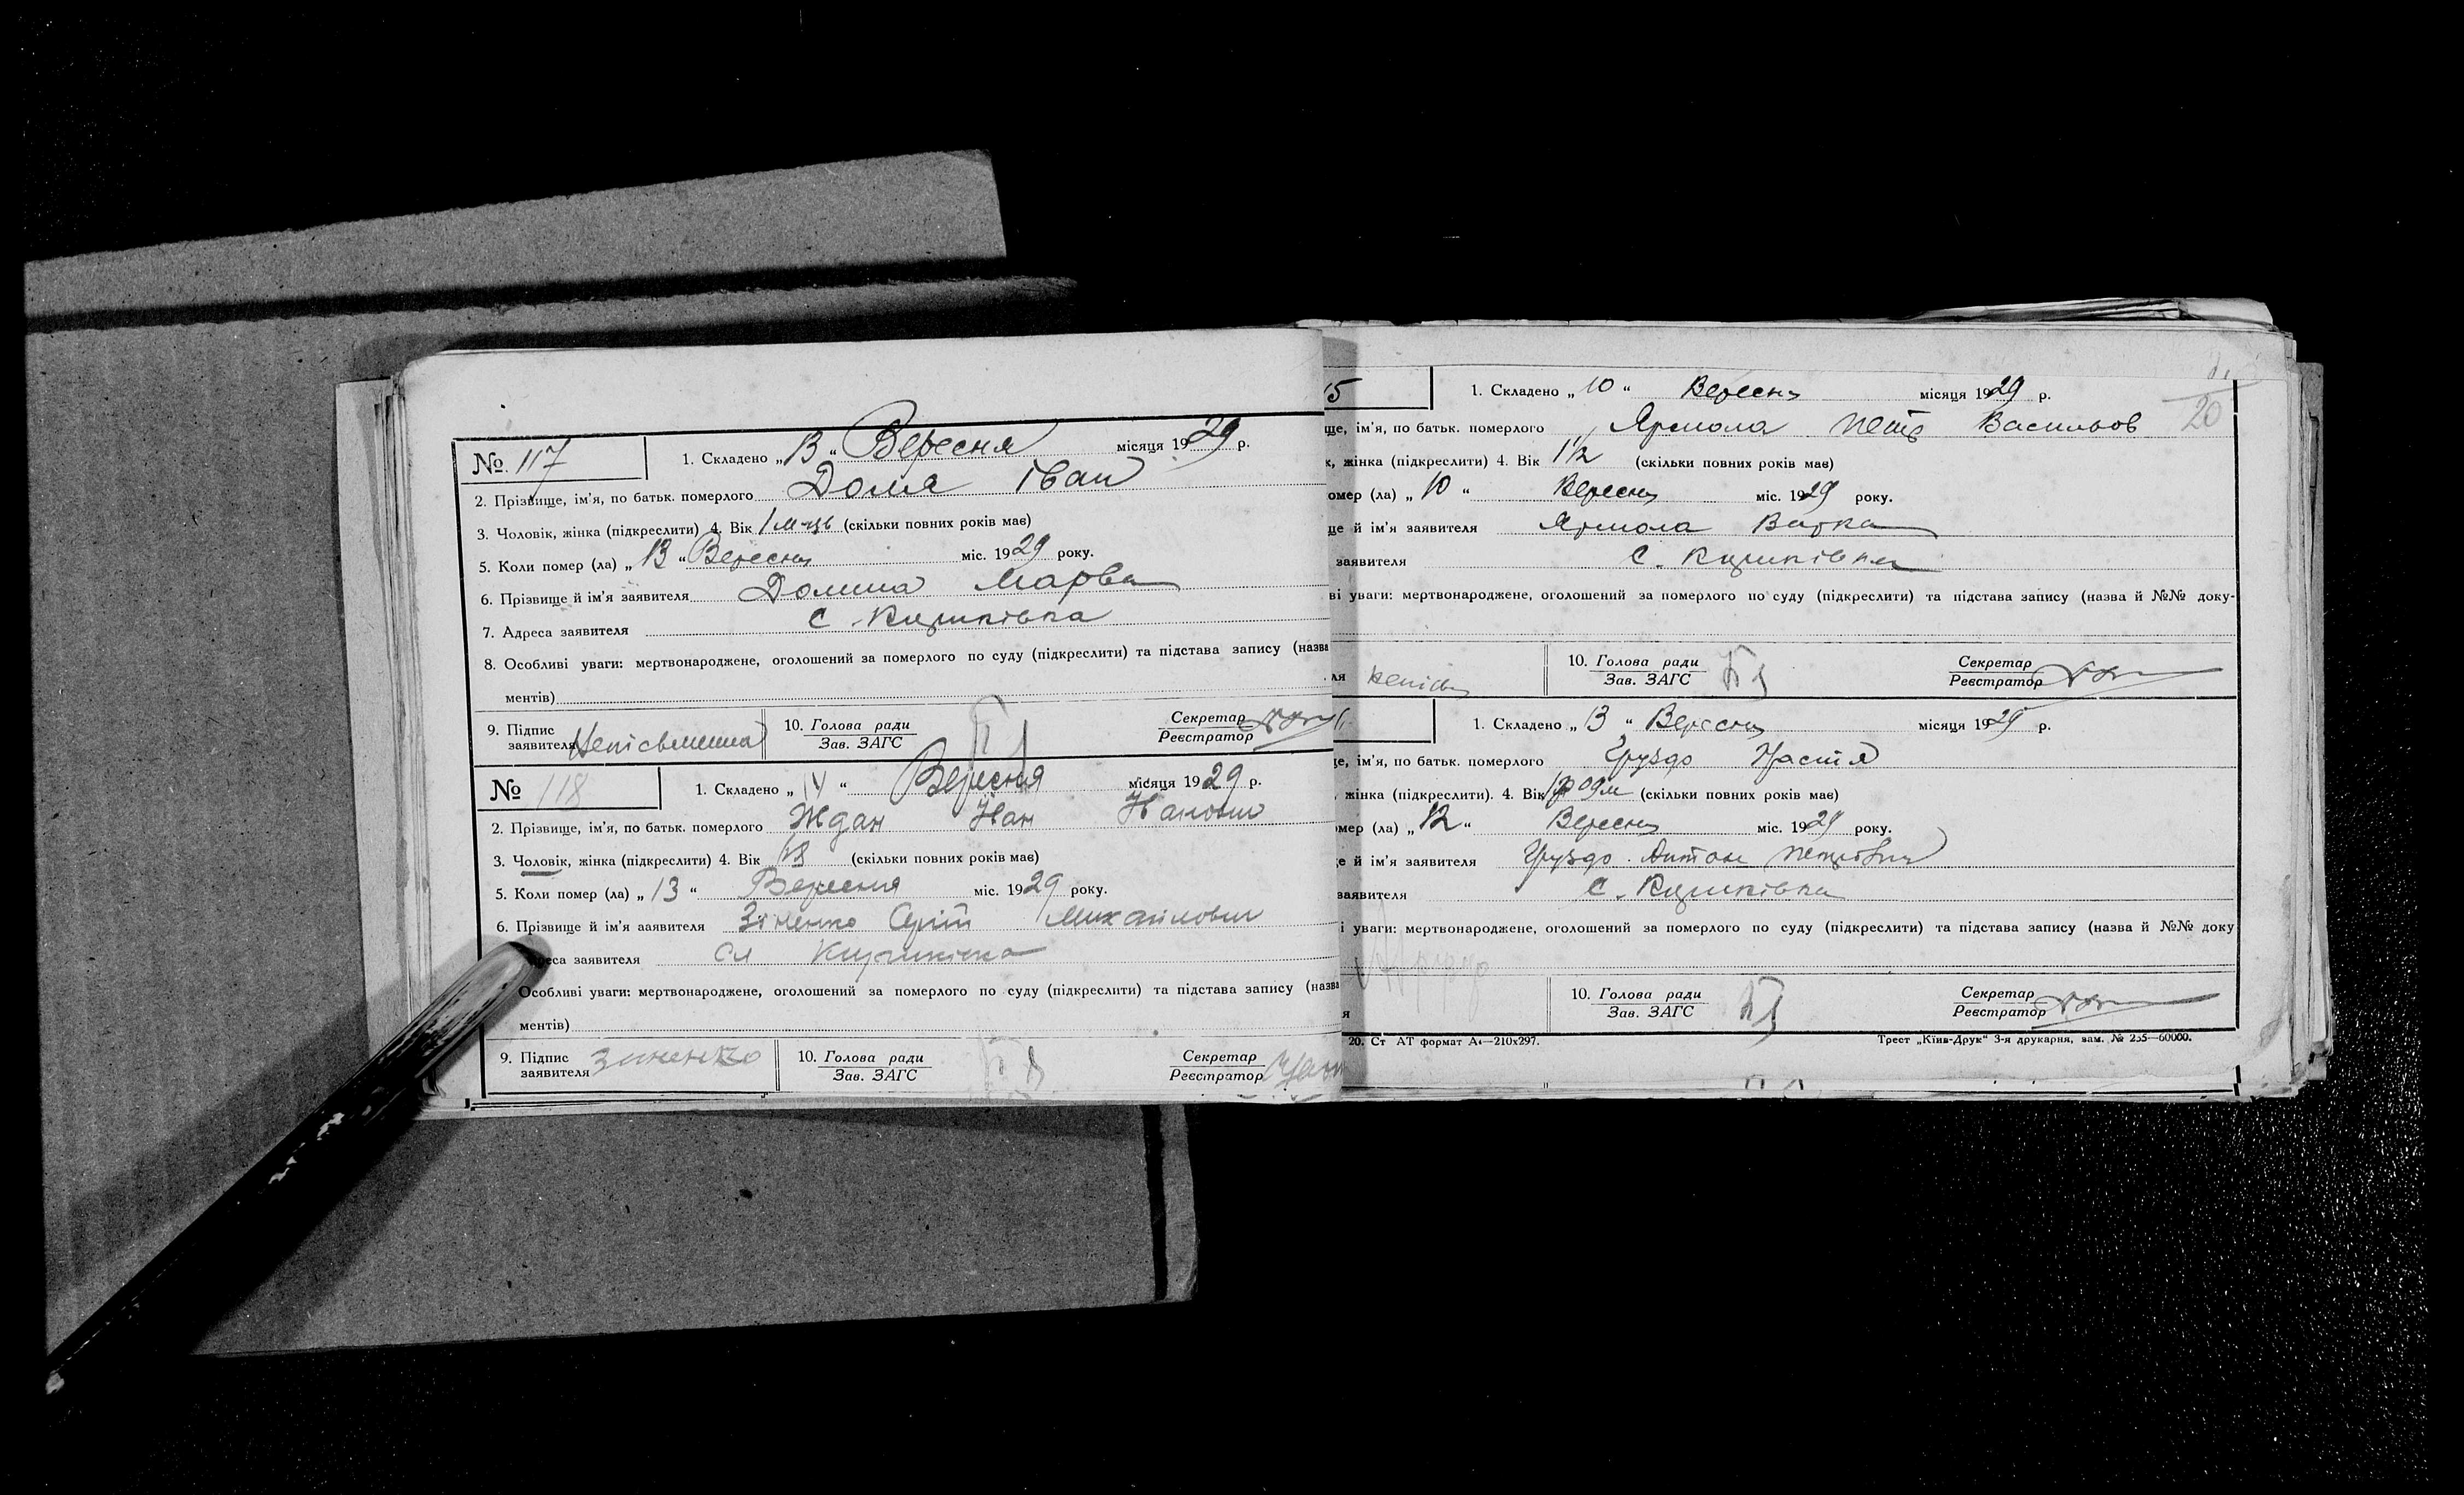 № 117
1. Складено „ 13 “ Вересня місяця 1929 р.
2. Прізвище, ім'я, по батьк. померлого Доля Іван
3. Чоловік, жінка (підкреслити) 4. Вік 1 м-ць (скільки повних років має)
5. Коли помер (ла) „ 13 “ Вересня міс. 1929 року.
6. Прізвище й ім'я заявителя Долина Марва
7. Адреса заявителя с.
8. Особливі уваги: мертвонароджене, оголошений за померлого по суду (підкреслити) та підстава запису (назва
ментів)
9. Підпис заявителя Неписьменна
10. Голова ради
Зав. ЗАГС
Секретар
Реєстратор
№ 118
1. Складено „ 14 “ Вересня місяця 1929 р.
2. Прізвище, ім'я, по батьк. померлого Ждан
3. Чоловік, жінка (підкреслити) 4. Вік (скільки повних років має)
5. Коли помер (ла) „ 13 “ Вересня міс. 1929 року.
6. Прізвище й ім'я заявителя Зіненко Сергій Михайлович
реса заявителя
Особливі уваги: мертвонароджене, оголошений за померлого по суду (підкреслити) та підстава запису (назва
ментів)
9. Підпис заявителя Зиненко
10. Голова ради
Зав. ЗАГС
Секретар
Реєстратор
15
1. Складено „ 10 “ Вересня місяця 1929 р.
20
ще, ім'я, по батьк. померлого Ярмола Петр Васильов
к, жінка (підкреслити) 4. Вік 1½ (скільки повних років має)
омер (ла) „ 10 “ Вересня міс. 1929 року.
ще й ім'я заявителя Ярмола Варка
заявителя с.
ві уваги: мертвонароджене, оголошений за померлого по суду (підкреслити) та підстава запису (назва й №№ доку-
ля
10. Голова ради
Зав. ЗАГС
Секретар
Реєстратор
1. Складено „ 13 “ Вересня місяця 1929 р.
це, ім'я, по батьк. померлого Груздо Настя
, жінка (підкреслити). 4. Вік (скільки повних років має)
мер (ла) „ 12 “ Вересня міс. 1929 року.
е й ім'я заявителя Груздо Антон Петрович
заявителя с.
і уваги: мертвонароджене, оголошений за померлого по суду (підкреслити) та підстава запису (назва й №№ доку
я
10. Голова ради
Зав. ЗАГС
Секретар
Реєстратор
20. Ст АТ формат А4—210х297.
Трест „Київ-Друк“ 3-я друкарня, зам. № 235—60000.